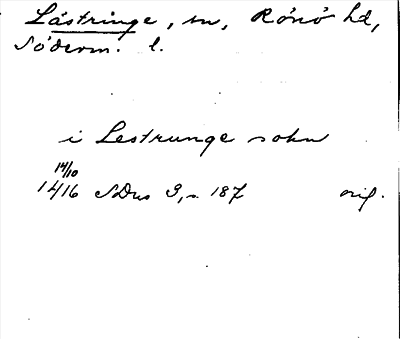 Lästringe, sn, Rönö hd,
Söderm. l.
i Lestrunge sokn
14/10
1416 SDns 3, s. 187 orig.